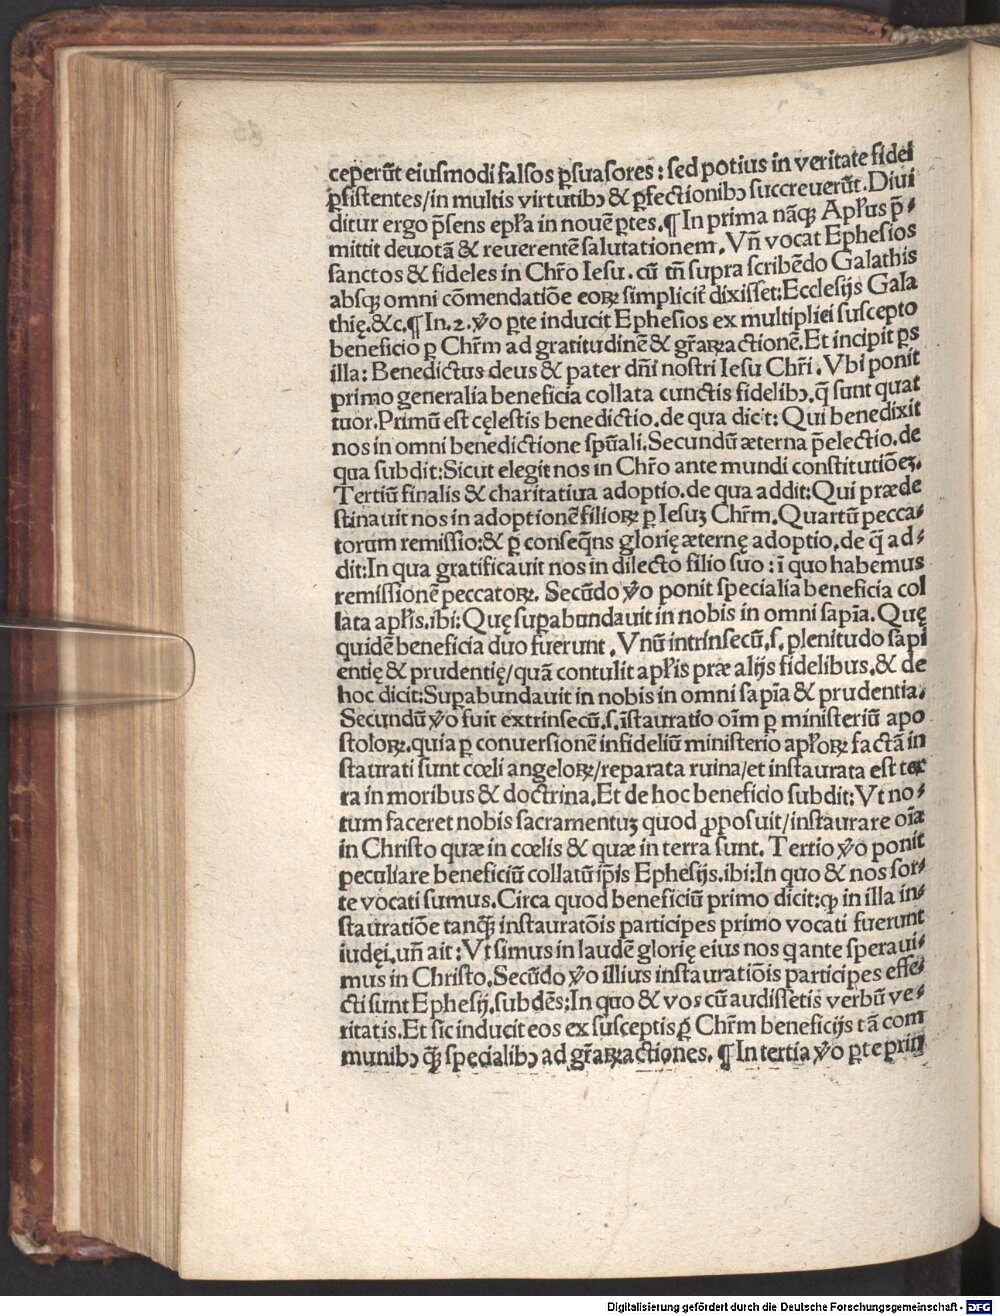 ceperūt eiusmodi falsos ꝑsuasores: sed potius in veritate fidei
ꝑsistentes/in multis virtutibꝫ & ꝑfectionibꝫ succreuerūt. Diui
ditur ergo p̄sens epl̄a in nouē ꝑtes. ¶ In prima nāqꝫ Apl̄us p̄⸗
mittit deuotā & reuerentē salutationem. Vn̄ vocat Ephesios
sanctos & fideles in Chr̄o Iesu. cū tn̄ supra scribēdo Galathis
absqꝫ omni cōmendatiōe eoꝝ simplicit̄ dixisset: Ecclesijs Gala
thię. &c. ¶ In. 2. v̊o ꝑte inducit Ephesios ex multipliei suscepto
beneficio ꝑ Chr̄m ad gratitudinē & gr̄aꝝactionē. Et incipit ꝑs
illa: Benedictus deus & pater dn̄i nostri Iesu Chr̄i. Vbi ponit
primo generalia beneficia collata cunctis fidelibꝫ. q̄ sunt quat
tuor. Primū est cęlestis benedictio. de qua dicit: Qui benedixit
nos in omni benedictione sp̄uali. Secundū æterna p̄electio. de
qua subdit: Sicut elegit nos in Chr̄o ante mundi constitutiōeꝫ.
Tertiū finalis & charitatiua adoptio. de qua addit: Qui præde
stinauit nos in adoptionē filioꝝ ꝑ Iesuꝫ Chr̄m. Quartū pecca⸗
torum remissio: & ꝑ conseq̄ns glorię æternę adoptio. de q̄ ad⸗
dit: In qua gratificauit nos in dilecto filio suo: ī quo habemus
remissionē peccatoꝝ. Secūdo v̊o ponit specialia beneficia col
lata apl̄is. ibi: Quę suꝑabundauit in nobis in omni sapīa. Quę
quidē beneficia duo fuerunt. Vnū intrinsecū. s. plenitudo sapi
entię & prudentię/quā contulit apl̄is præ alijs fidelibus. & de
hoc dicit: Suꝑabundauit in nobis in omni sapīa & prudentia.
Secundū v̊o fuit extrinsecū. s. īstauratio oīm ꝑ ministeriū apo
stoloꝝ. quia ꝑ conuersionē infideliū ministerio apl̄oꝝ factā in
staurati sunt cœli angeloꝝ/reparata ruina/et instaurata est ter
ra in moribus & doctrina. Et de hoc beneficio subdit: Vt no⸗
tum faceret nobis sacramentuꝫ quod ꝓposuit/instaurare oīa
in Christo quæ in cœlis & quæ in terra sunt. Tertio v̊o ponit
peculiare beneficiū collatū ip̄is Ephesijs. ibi: In quo & nos sor⸗
te vocati sumus. Circa quod beneficiū primo dicit: ꝙ in illa in⸗
stauratiōe tanqꝫ̄ instauratōis participes primo vocati fuerunt
iudęi. un̄ ait: Vt simus in laudē glorię eius nos q̇ ante speraui⸗
mus in Christo. Secūdo v̊o illius instauratiōis participes effe⸗
cti sunt Ephesij. subdēs: In quo & vos cū audissetis verbū ve⸗
ritatis. Et sic inducit eos ex susceptis ꝑ Chr̄m beneficijs tā com
munibꝫ qꝫ̄ specialibꝫ ad gr̄aꝝactiones. ¶ In tertia v̊o ꝑte prin
Digitalisierung gefördert durch die Deutsche Forschungsgemeinschaft - DFG